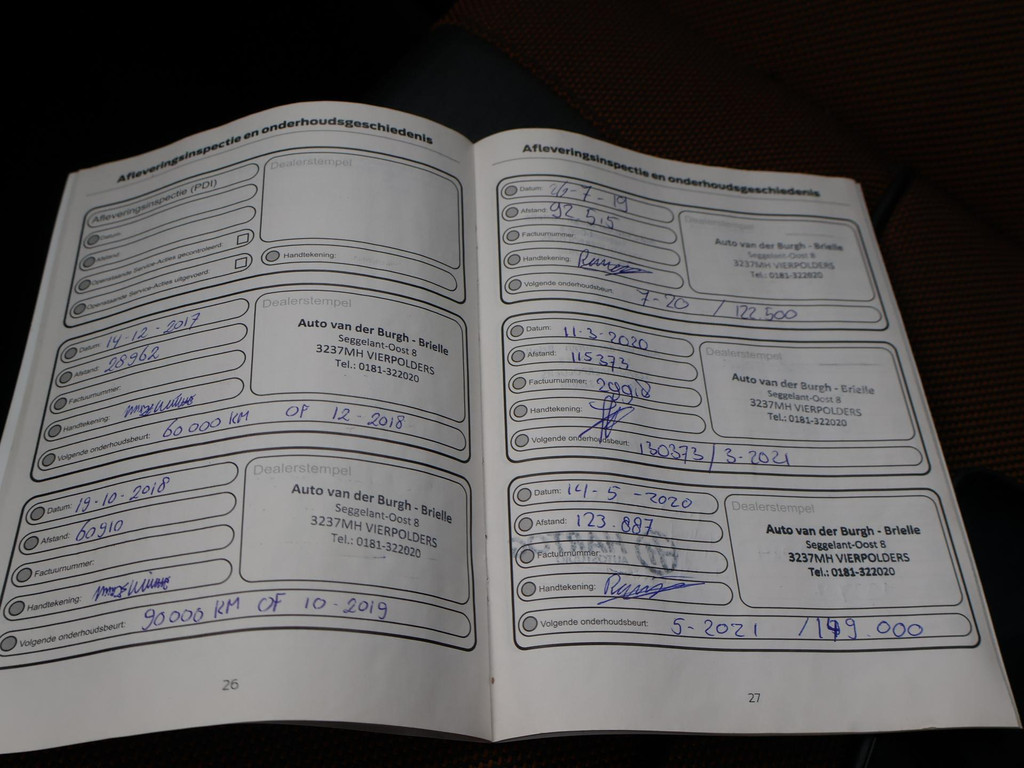 Afleveringsinspectie en onderhoudsgeschiedenis
Afleveringsinspectie (PDI)
Datum:
Afstand:
Openstaande Service-Acties gecontroleerd.
Openstaande Service-Acties uitgevoerd.
Dealerstempel
Handtekening:
Datum: 14-12-2017
Afstand: 28962
Factuurnummer:
Handtekening:
Volgende onderhoudsbeurt: 60 000 KM OF 12 - 2018
Dealerstempel
Auto van der Burgh - Brielle
Seggelant-Oost 8
3237MH VIERPOLDERS
Tel.: 0181-322020
Datum: 19-10-2018
Afstand: 60910
Factuurnummer:
Handtekening:
Volgende onderhoudsbeurt: 90000 KM OF 10 - 2019
Dealerstempel
Auto van der Burgh - Brielle
Seggelant-Oost 8
3237MH VIERPOLDERS
Tel.: 0181-322020
26
Afleveringsinspectie en onderhoudsgeschiedenis
Datum: 26-7-19
Afstand: 92515
Factuurnummer:
Handtekening:
Volgende onderhoudsbeurt: 7-20 / 122.500
Dealerstempel
Auto van der Burgh - Brielle
Seggelant-Oost 8
3237MH VIERPOLDERS
Tel.: 0181-322020
Datum: 11-3-2020
Afstand: 115373
Factuurnummer: 29918
Handtekening:
Volgende onderhoudsbeurt: 130373 / 3-2021
Dealerstempel
Auto van der Burgh - Brielle
Seggelant-Oost 8
3237MH VIERPOLDERS
Tel.: 0181-322020
Datum: 14-5-2020
Afstand: 123.887
Factuurnummer:
Handtekening:
Volgende onderhoudsbeurt: 5-2021 / 149.000
Dealerstempel
Auto van der Burgh - Brielle
Seggelant-Oost 8
3237MH VIERPOLDERS
Tel.: 0181-322020
27